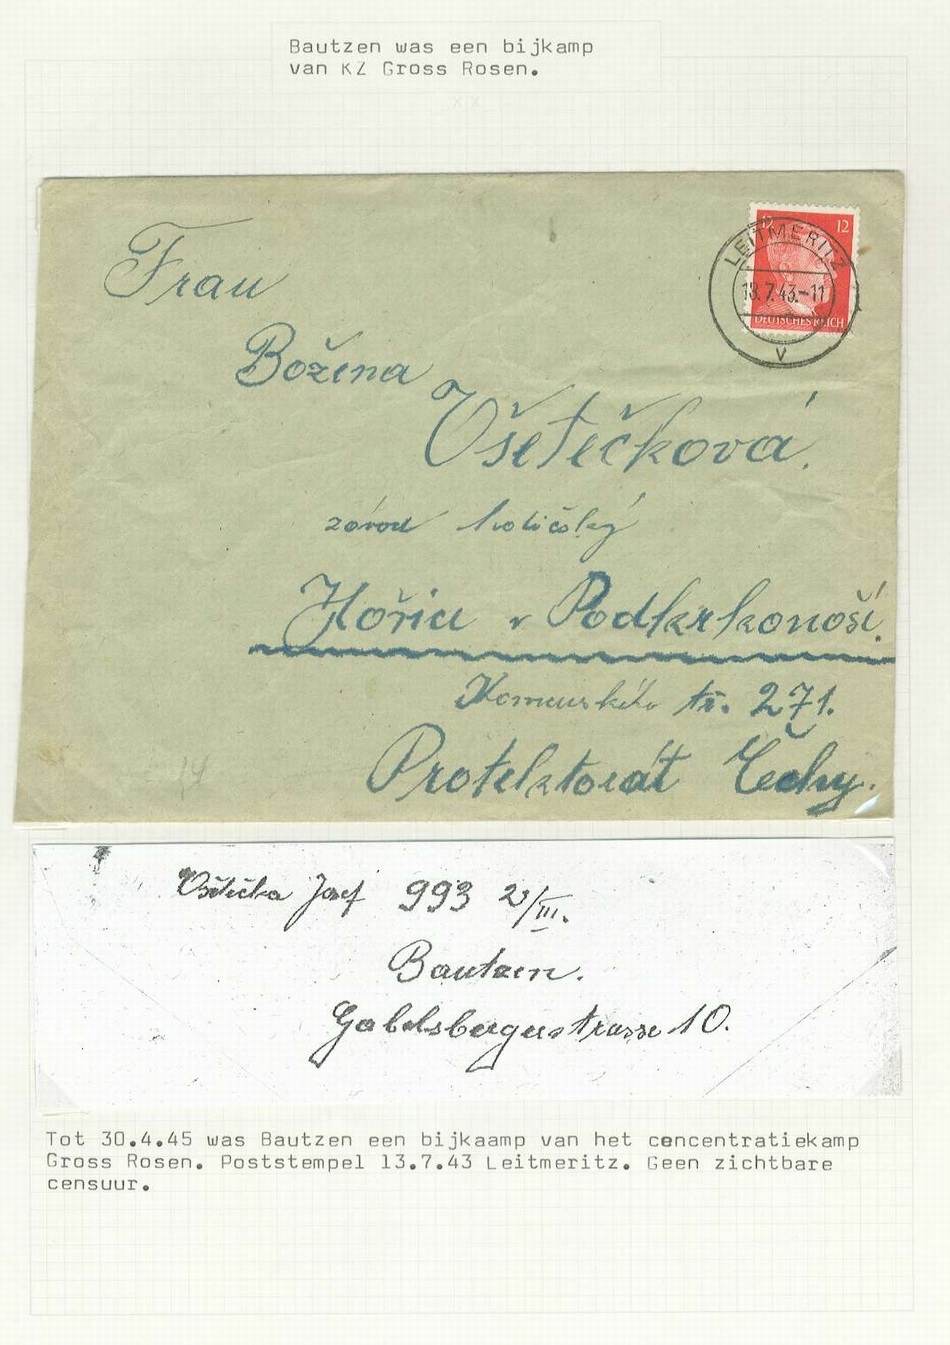 Bautzen was een bijkamp
van KZ Gross Rosen.
xx
Frau
12
12
LEITMERITZ
13.7.43.-11
DEUTSCHES REICH
V
Božena
Všetečková.
závod holičský
Hořice v Podkrkonoší.
Komenského tř. 271.
Protektorát Čechy.
14
Všetička Josef 993 23/III.
Bautzen.
Gabelsbergerstrasse 10.
Tot 30.4.45 was Bautzen een bijkaamp van het concentratiekamp
Gross Rosen. Poststempel 13.7.43 Leitmeritz. Geen zichtbare
censuur.